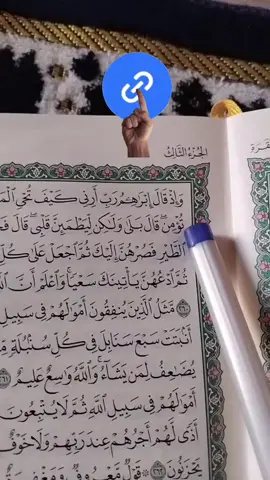 الجزء الثالث
وَإِذْ قَالَ إِبْرَٰهِـۧمُ رَبِّ أَرِنِى كَيْفَ تُحْىِ
تُؤْمِن ۖ قَالَ بَلَىٰ وَلَٰكِن لِّيَطْمَئِنَّ قَلْبِى ۖ قَالَ
ٱلطَّيْرِ فَصُرْهُنَّ إِلَيْكَ ثُمَّ ٱجْعَلْ عَلَىٰ كُلِّ
ثُمَّ ٱدْعُهُنَّ يَأْتِينَكَ سَعْيًا ۚ وَٱعْلَمْ أَنَّ
مَّثَلُ ٱلَّذِينَ يُنفِقُونَ أَمْوَٰلَهُمْ فِى سَبِيلِ
أَنۢبَتَتْ سَبْعَ سَنَابِلَ فِى كُلِّ سُنۢبُلَةٍ
يُضَٰعِفُ لِمَن يَشَآءُ ۗ وَٱللَّهُ وَٰسِعٌ عَلِيمٌ ٢٦١
أَمْوَٰلَهُمْ فِى سَبِيلِ ٱللَّهِ ثُمَّ لَا يُتْبِعُونَ
أَذًى لَّهُمْ أَجْرُهُمْ عِندَ رَبِّهِمْ وَلَا خَوْفٌ
يَحْزَنُونَ ٢٦٢ قَوْلٌ مَّعْرُوفٌ وَمَغْفِرَةٌ